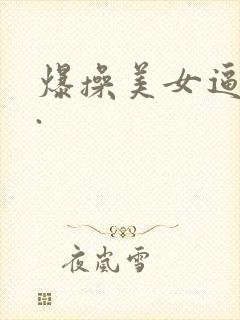 爆操美女逼
.
夜岚雪